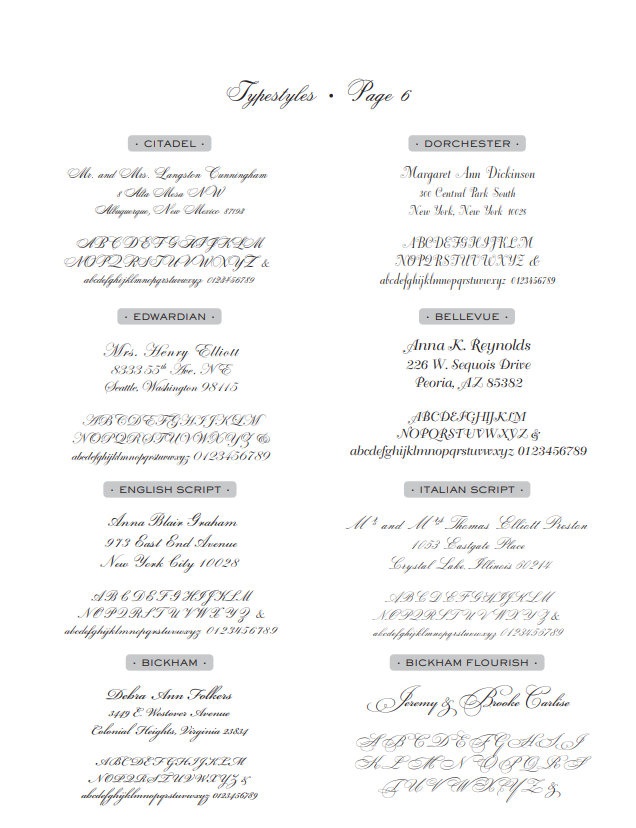 Typestyles • Page 6
· CITADEL ·
Mr. and Mrs. Langston Cunningham
8 Alta Mesa NW
Albuquerque, New Mexico 87193
ABCDEFGHIJKLM
NOPQRSTUVWXYZ &
abcdefghijklmnopqrstuvwxyz 0123456789
· DORCHESTER ·
Margaret Ann Dickinson
300 Central Park South
New York, New York 10028
ABCDEFGHIJKLM
NOPQRSTUVWXYZ &
abcdefghijklmnopqrstuvwxyz 0123456789
· EDWARDIAN ·
Mrs. Henry Elliott
8333 55th Ave, NE
Seattle, Washington 98115
ABCDEFGHIJKLM
NOPQRSTUVWXYZ &
abcdefghijklmnopqrstuvwxyz 0123456789
· BELLEVUE ·
Anna K. Reynolds
226 W. Sequois Drive
Peoria, AZ 85382
ABCDEFGHIJKLM
NOPQRSTUVWXYZ &
abcdefghijklmnopqrstuvwxyz 0123456789
· ENGLISH SCRIPT ·
Anna Blair Graham
973 East End Avenue
New York City 10028
ABCDEFGHIJKLM
NOPQRSTUVWXYZ &
abcdefghijklmnopqrstuvwxyz 0123456789
· ITALIAN SCRIPT ·
Mr. and Mrs. Thomas Elliott Preston
1053 Eastgate Place
Crystal Lake, Illinois 60214
ABCDEFGHIJKLM
NOPQRSTUVWXYZ &
abcdefghijklmnopqrstuvwxyz 0123456789
· BICKHAM ·
Debra Ann Folkers
3449 E. Westover Avenue
Colonial Heights, Virginia 23834
ABCDEFGHIJKLM
NOPQRSTUVWXYZ &
abcdefghijklmnopqrstuvwxyz 0123456789
· BICKHAM FLOURISH ·
Jeremy & Brooke Carlise
ABCDEFGHIJ
KLMNOPQRS
TUVWXYZ &